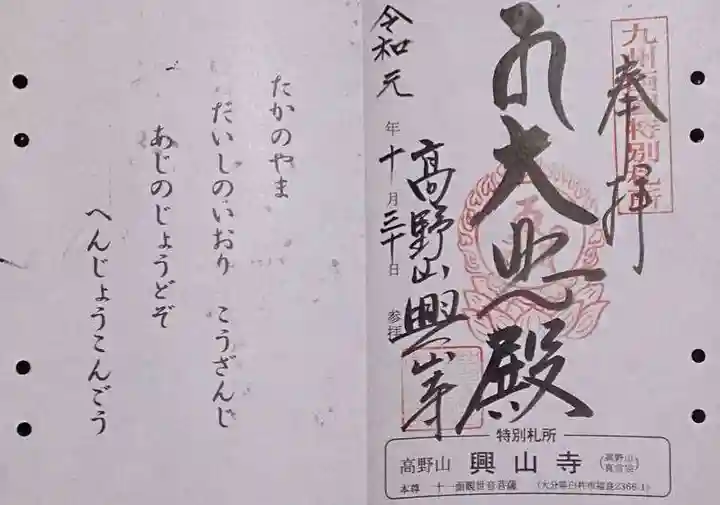 奉拝
大悲殿
高野山興山寺
令和元年十月三十日 参拝
特別札所
高野山 興山寺 (高野山真言宗)
本尊 十一面観世音菩薩 (大分県臼杵市福良2366-1)
たかのやま
だいしのいおり こうざんじ
あじのじょうどぞ
へんじょうこんごう